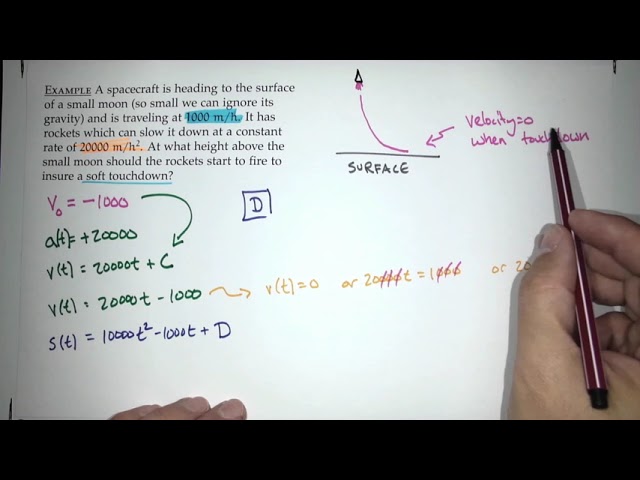 EXAMPLE A spacecraft is heading to the surface
of a small moon (so small we can ignore its
gravity) and is traveling at 1000 m/h. It has
rockets which can slow it down at a constant
rate of 20000 m/h². At what height above the
small moon should the rockets start to fire to
insure a soft touchdown?
SURFACE
velocity=0
when touchdown
V₀ = -1000
D
a(t)=+20000
v(t) = 20000t + C
v(t) = 20000t - 1000
v(t)=0 or 20000t = 1000 or 20
s(t) = 10000t² -1000t + D